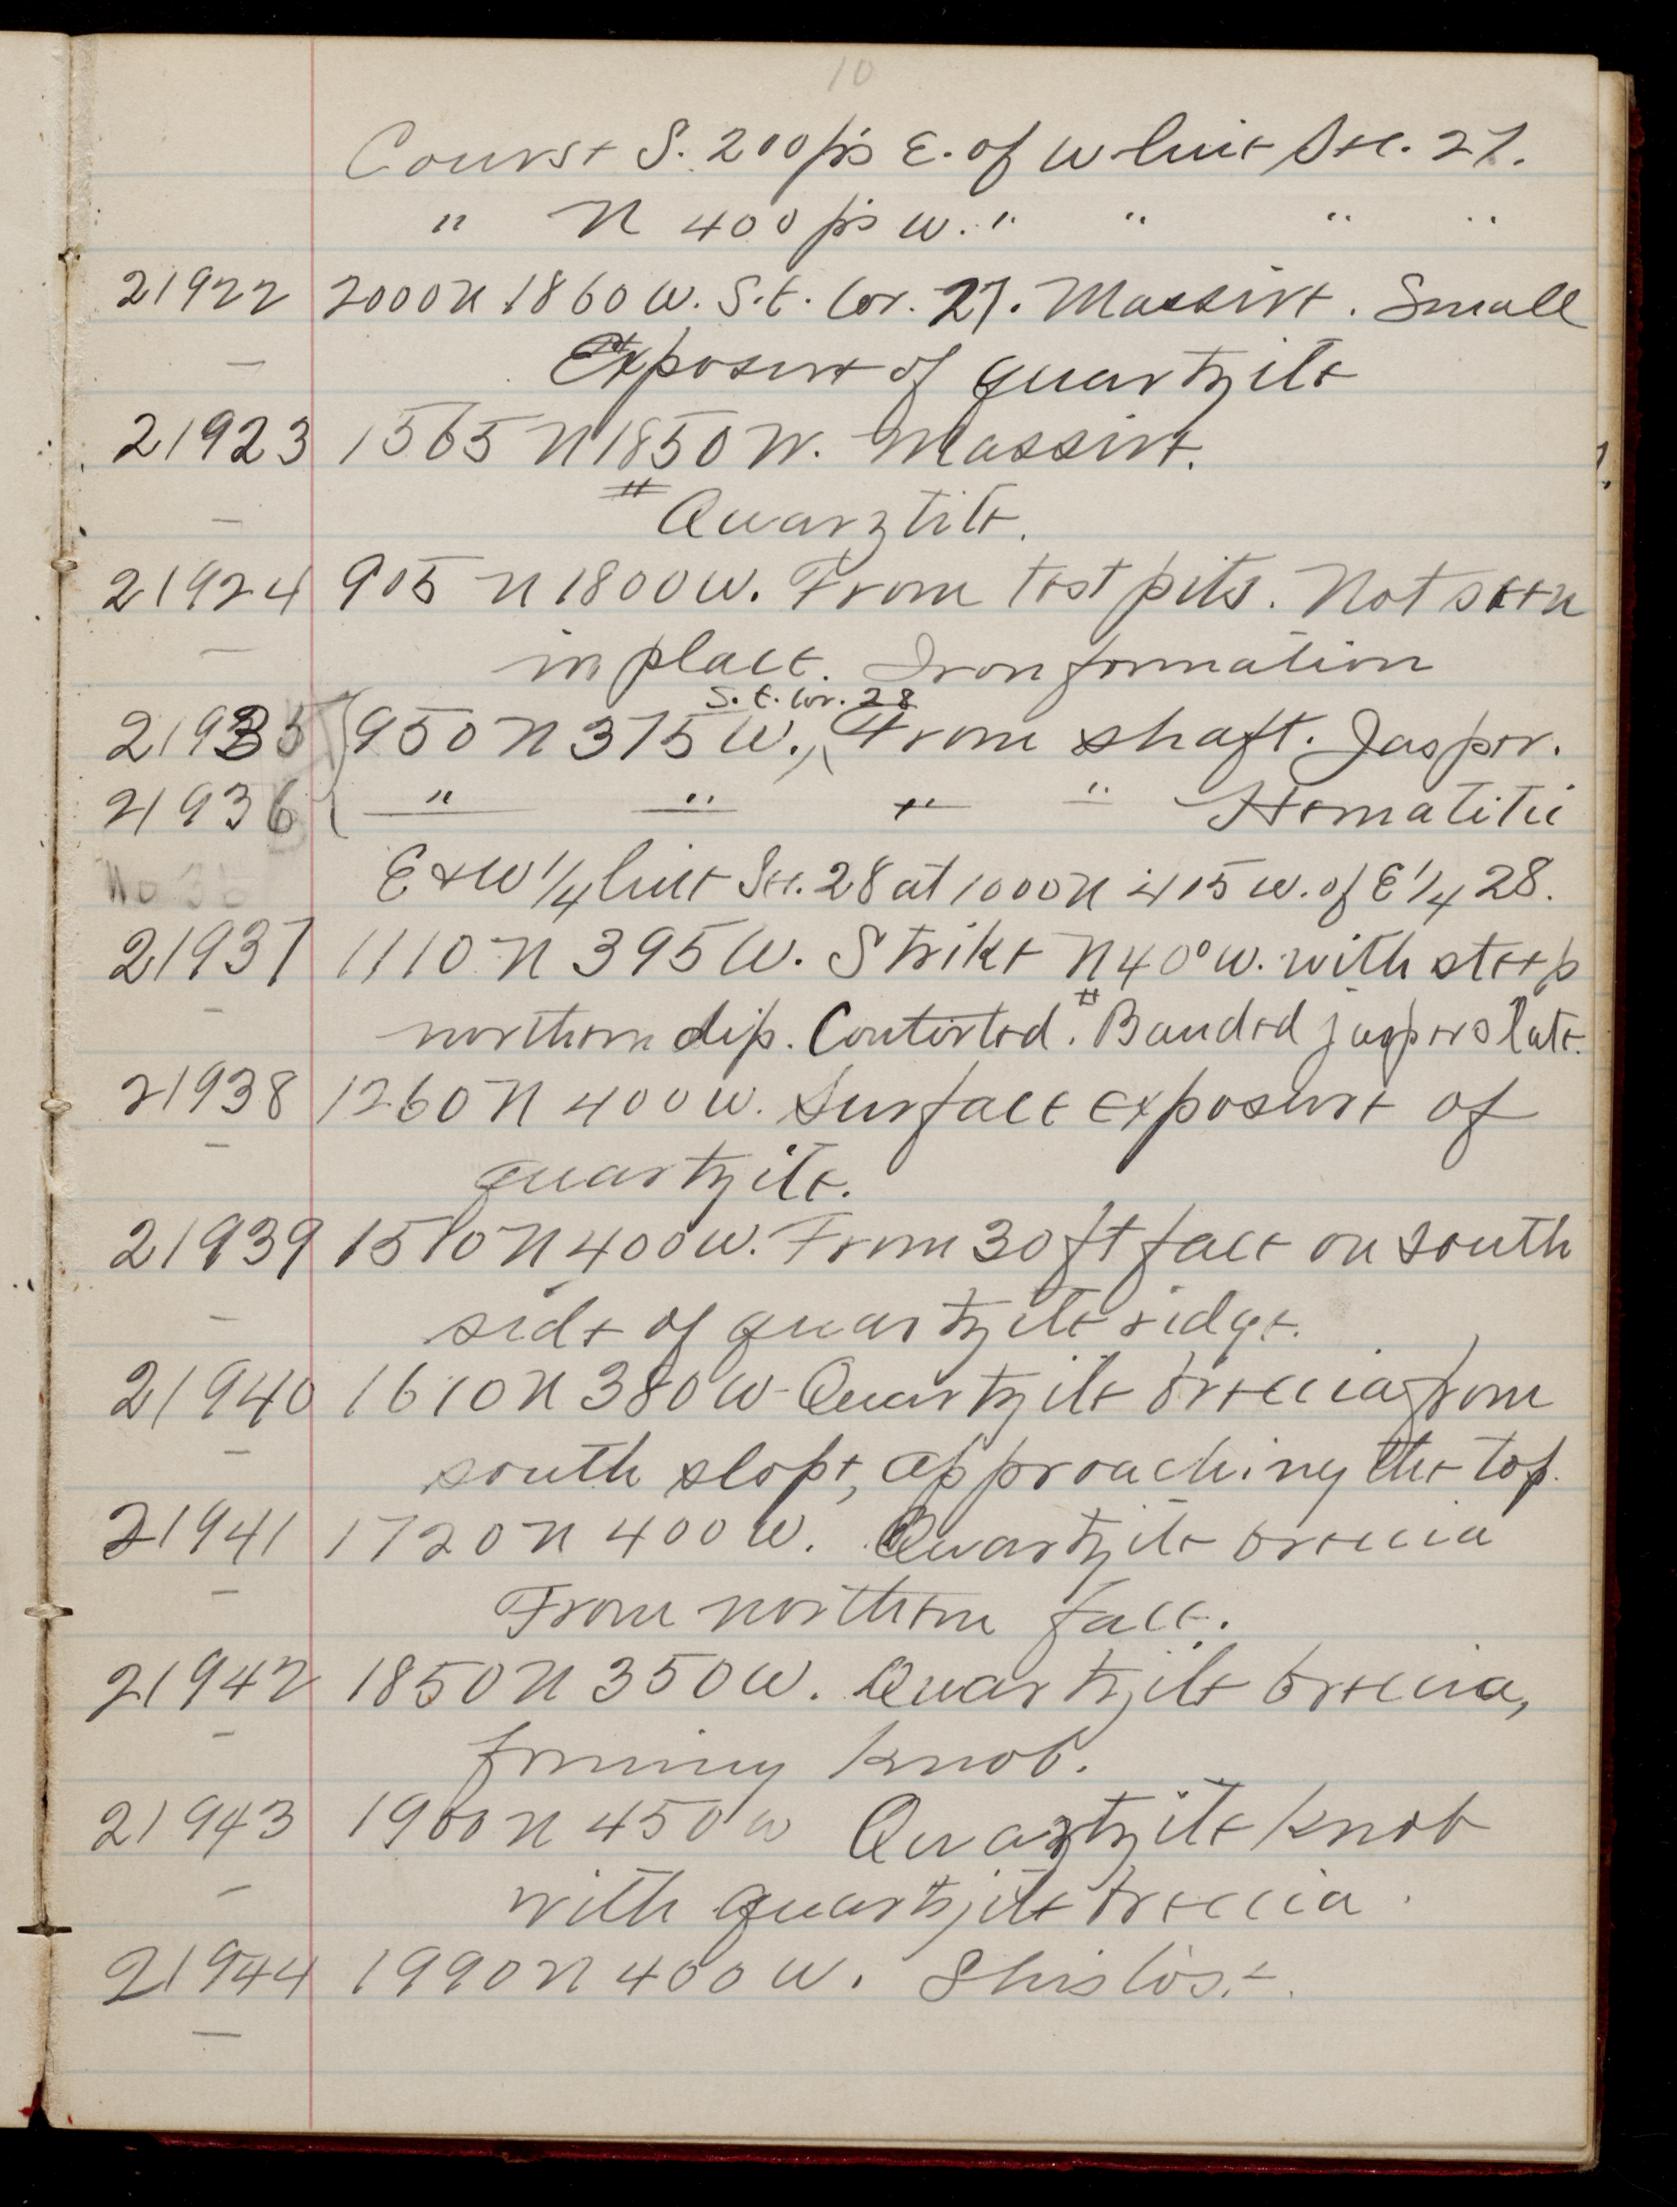 10
Course S. 200 ps E. of W line Sec. 27.
" N 400 ps W. " " " "
21922 2000 N 1860 W. S.E. Cor. 27. Massive. Small
— Exposure of quartzite
21923 1565 N 1850 W. Massive.
— Quarztite.
21924 905 N 1800 W. From test pits. Not seen
— in place. Iron formation
S.E. Cor. 28
21935 950 N 375 W., From shaft. Jasper.
21936 " " " " Hematitic
E & W 1/4 line Sec. 28 at 1000 N 415 W. of E 1/4 28.
21937 1110 N 395 W. Strike N 40° W. with steep
— northern dip. Contorted. Banded jasper slate.
21938 1260 N 400 W. Surface exposure of
— quartzite.
21939 1510 N 400 W. From 30 ft face on south
— side of quartzite ridge.
21940 1610 N 380 W - Quartzite breccia from
— south slope, approaching the top.
21941 1720 N 400 W. Quartzite breccia
— From northern face.
21942 1850 N 350 W. Quartzite breccia,
— forming knob.
21943 1900 N 450 W Quartzite knob
— with quartzite breccia.
21944 1990 N 400 W. Shistose.
—